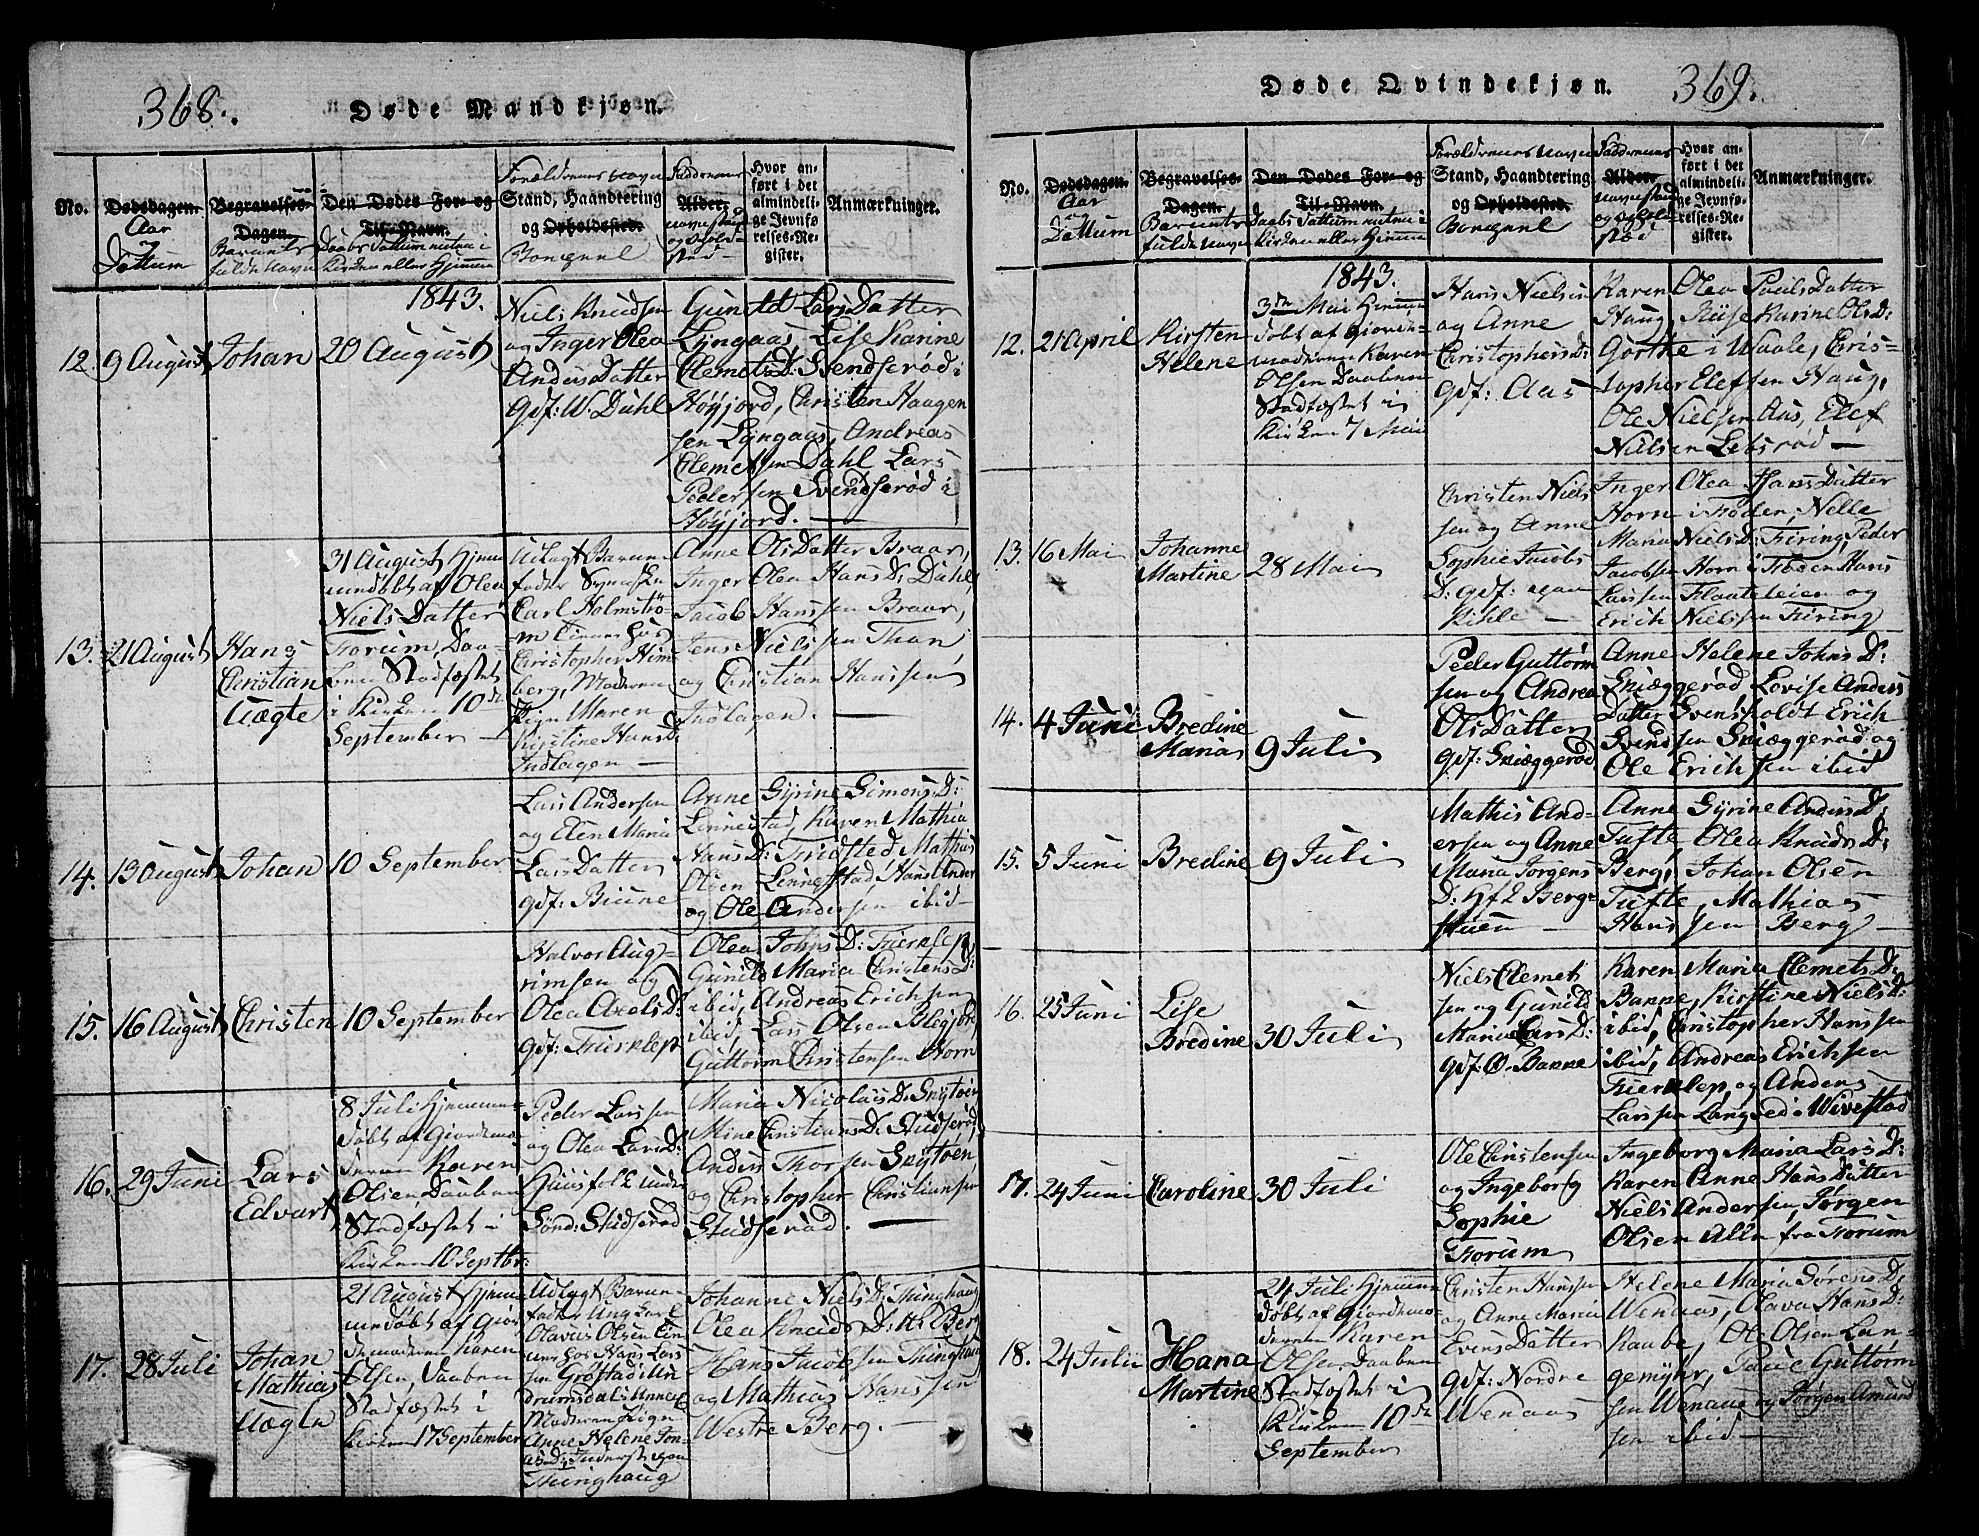 368.
Døde Mandkjøn.
No.
Dødsdagen.
Aar
Dattum
Begravelses-
Dagen.
Barnets
fulde Navn
Den Dødes For- og
Til-Navn.
Daabs Dattum enten i
Kirken eller Hjemme
Forældrenes Navn
Stand, Haandtering
og Opholdssted.
Boepæl
Faddernes
Alder.
Navne Stand
og Ophold-
sted
Hvor an-
ført i det
almindeli-
ge Jevnfø-
relses-Re-
gister.
Anmærkninger.
1843.
12.
9 August
Johan
20 August
Niels Knudsen
og Inger Olea
Anders Datter
Gdf: W. Dahl
Gunild Lars Datter
Lyngaas, Lise Karine
Clemets D: Svendserød i
Høyjord, Christen Haagen
sen Lyngaas, Andreas
Clemetsen Dahl Lars
Pedersen Svendserød i
Høyjord.
13.
21 August
Hans
Christian
Uægte
31 August Hjem
døbt af Olea
Niels Datter
Forum, Daa-
ben Stadfæstet
i Kirken 10de
September
Udlagt Barne
fader
Carl Holmstrø
m
Christopher Him
berg, Moderen
Pige Maren
Kirstine Hans D:
Indlagen
Anne Ols Datter Braar,
Inger Olea Hans D: Dahl,
Jacob Hanssen Braar,
Jens Nielssen Thon
og Christian Hanssen
Indlagen.
14.
13 August
Johan
10 September
Lars Andersen
og Elen Maria
Lars Datter
gdf: Biune
Anne Gyrine Simons D:
Lennestad, Karen Mathia
Hans D: Fridsted Mathias
Olsen Lennestad, Hans Ander
og Ole Andersen ibid
15.
16 August
Christen
10 September
Halvor Aug-
rimsen og
Olea Axels D:
gdf: Fierklep
Olea Johns D: Fierklep
Gunild Maria Christens D:
ibid, Andreas Erichsen
ibid, Lars Olsen
Guttorm Christensen Horn
16.
29 Juni
Lars
Edvart
8 Juli Hjemme-
døbt af Giordemo-
deren Karen
Olsen, Daaben
Stadfæstet i
Kirken 10 Septbr:
Peder Larssen
og Olea Lars D:
Huusfolk under
Sønd: Studserød
Maria Nicolais D: Snytøen
Mine Christians D: Studserød,
Anders Thorsen Snytøen,
og Christopher Christiansen
Studserød.
17.
28 Juli
Johan
Mathias
Uægte
21 August Hjem
døbt af Gior
demoderen Karen
Olsen, Daaben
Stadfæstet i
Kirken 17 September
Udlagt Barne-
fader Ung Karl
Olavus Olsen tin
hos Hans Lars
sen
Moderen Pige
Anne Helene
Thinghaug
Johanne Niels D: Thinghaug
Olea Knuds D: W: Berg
Hans Jacobsen Thinghaug
og Mathias Hanssen
Westre Berg.
369.
Døde Qvindekjøn.
No.
Dødsdagen.
Aar
og
Dattum
Begravelses-
Dagen.
Barnets
fulde Navn
Den Dødes For- og
Til-Navn.
Daabs Dattum enten i
Kirken eller Hjemme
Forældrenes Navn
Stand, Haandtering
og Opholdssted.
Boepæl
Faddernes
Alder.
Navne Stand
og Ophold-
sted
Hvor an-
ført i det
almindeli-
ge Jevnfø-
relses-Re-
gister.
Anmærkninger.
1843.
12.
21 April
Kirsten
Helene
3die Mai Hjemme
døbt af Giorde-
moderen Karen
Olsen Daaben
Stadfæstet i
Kirken 7 Mai
Hans Nielsen
og Anne
Christophers D:
gdf: Aas
Karen Olea Pauls Datter
Haug, Karine Ols D:
i Waale, Chris-
topher Elefsen Haug,
Ole Nielsen Aas, Elef
Nielsen Lebsrød
13.
16 Mai
Johanne
Martine
28 Mai
Christen Niels
sen og Anne
Sophie Jacobs
D: gdf:
Kihle
Inger Olea Hans Datter
Horn i Foden, Nelle
Maria Niels D: Firing, Peder
Jacobsen Horn i Hans
Larssen Flaateien og
Erich Nielssen Firing
14.
4 Juni
Bredine
Maria
9 Juli
Peder Guttorm
sen og Andrea
Ols Datter
gdf: Sniæggerød
Anne Helene Johns D:
Sniæggerød Lovise Anders
Datter Svensholdt Erich
Svendsen Sniæggerød og
Ole Erichsen ibid
15.
5 Juni
Bredine
9 Juli
Mathis And-
ersen og Anne
Maria Jørgens
D: Hf Berge
stuen
Anne Gyrine Anders D:
Tufte, Olea Knuds D:
Berg, Johan Olsen
Tufte, Mathias
Hanssen Berg
16.
25 Juni
Lise
Bredine
30 Juli
Niels Clemet
sen og Gunild
Maria Lars D:
gdf: Ø. Banne
Karen Maria Clemets D:
Banne, Kirstine Niels D:
ibid, Christopher Hanssen
ibid, Andreas Erichsen
Fierklep, og Anders
Larssen Langsed i Wivestad
17.
24 Juni
Caroline
30 Juli
Ole Christensen
og Ingeborg
Sophie
Forum
Ingeborg Maria Lars D:
Karen Anne Hans Datter
Niels Andersen, Jørgen
Olsen Alle fra Forum
18.
24 Julii
Hana
Martine
24 Juli Hjemme
døbt af Giordemo-
deren Karen
Olsen, Daaben
Stadfæstet i
Kirken 10de
September
Christen Hanssen
og Anne Maria
Evens Datter
gdf: Nordre
Wenaas
Helene Maria Sørens D:
Wenaas, Olava Hans D:
Raabe, Ole Olsen Lan-
gemyhr, Paul Guttorm
sen Wenaas og Jørgen Amund
sen ibid